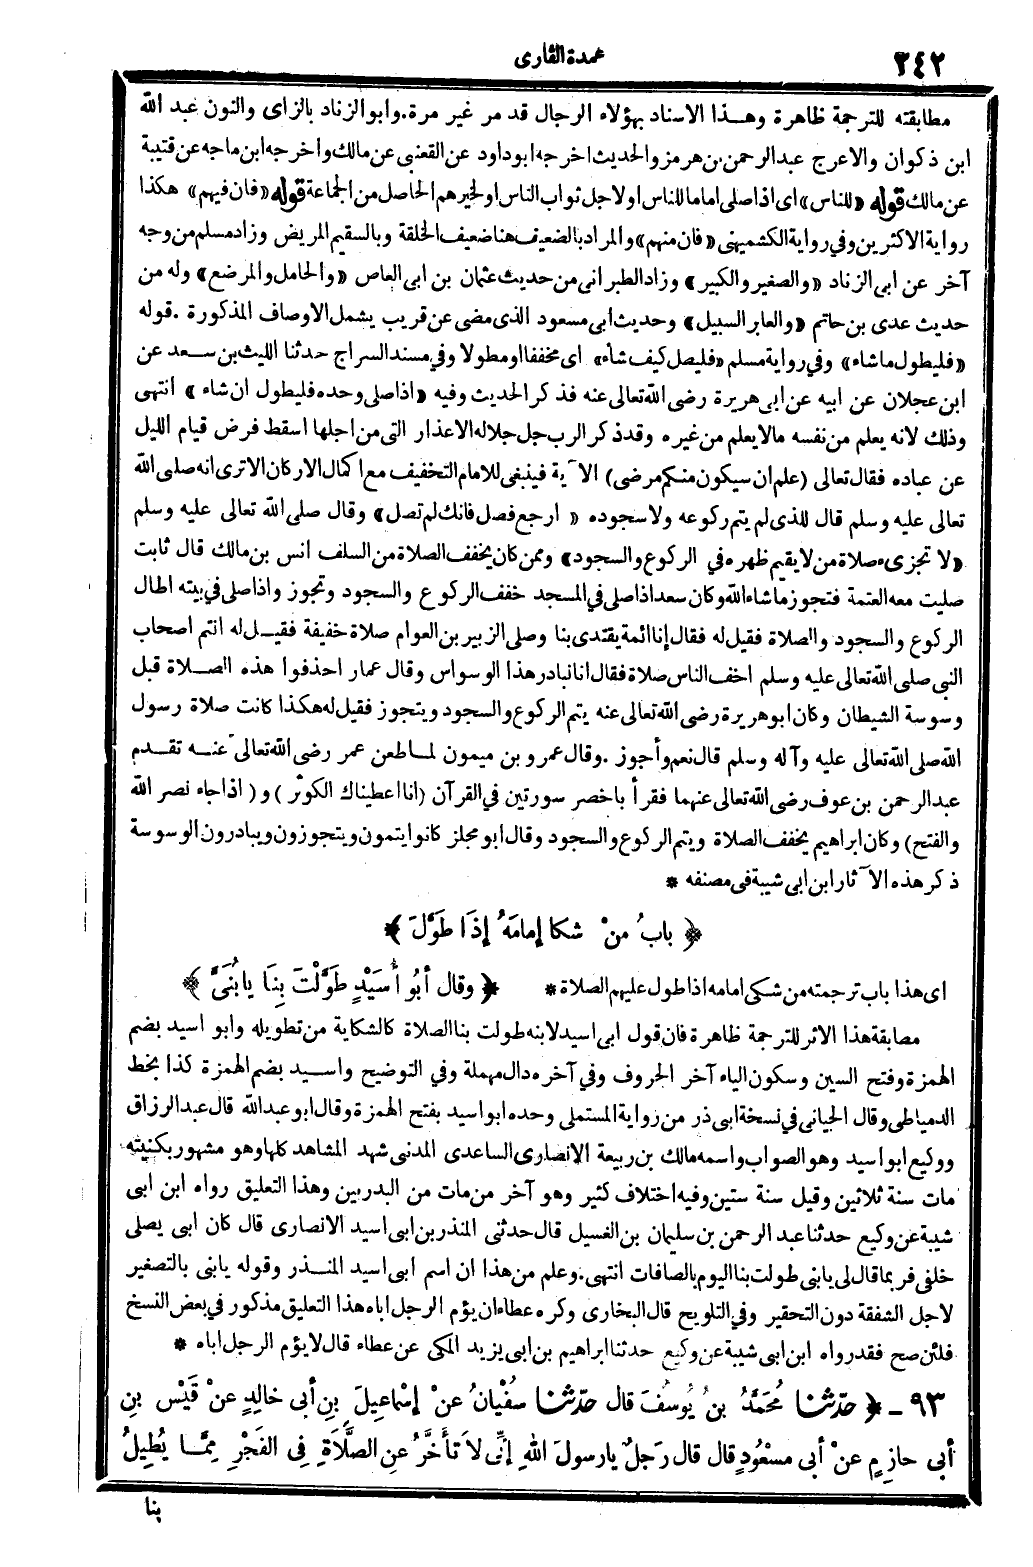 ٢٤٢
عمدة القارى
مطابقته للترجمة ظاهرة وهـذا الاسناد بهؤلاء الرجال قد مر غير مرة.وابو الزناد بالزاى والنون عبد الله
ابن ذكوان والاعرج عبد الرحمن بن هرمز والحديث اخرجه ابو داود عن القعنبى عن مالك واخرجه ابن ماجه عن قتيبة
عن مالك قوله «للناس» اى اذا صلى اماما للناس او لاجل ثواب الناس او لخيرهم الحاصل من الجماعة قوله «فان فيهم» هكذا
رواية الاكثرين وفي رواية الكشميهنى «فان منهم» والمراد بالضعيف هنا ضعيف الخلقة وبالسقيم المريض وزاد مسلم من وجه
آخر عن ابى الزناد «والصغير والكبير» وزاد الطبرانى من حديث عثمان بن ابى العاص «والحامل والمرضع» وله من
حديث عدى بن حاتم «والعابر السبيل» وحديث ابى مسعود الذى مضى عن قريب يشمل الاوصاف المذكورة .قوله
«فليطول ماشاء» وفي رواية مسلم «فليصل كيف شاء» اى مخففا او مطولا وفي مسند السراج حدثنا الليث بن سـعد عن
ابن عجلان عن ابيه عن ابى هريرة رضى الله تعالى عنه فذكر الحديث وفيه «اذا صلى وحده فليطول ان شاء» انتهى
وذلك لانه يعلم من نفسه مالا يعلم من غيره وقد ذكر الرب جل جلاله الاعذار التى من اجلها اسقط فرض قيام الليل
عن عباده فقال تعالى (علم ان سيكون منكم مرضى) الآية فينبغى للامام التخفيف مع اكمال الاركان الا ترى انه صلى الله
تعالى عليه وسلم قال للذى لم يتم ركوعه ولا سجوده «ارجع فصل فانك لم تصل» وقال صلى الله تعالى عليه وسلم
«لا تجزىء صلاة من لا يقيم ظهره في الركوع والسجود» وممن كان يخفف الصلاة من السلف انس بن مالك قال ثابت
صليت معه العتمة فتجوز ماشاء الله وكان سعد اذا صلى في المسجد خفف الركوع والسجود وتجوز واذا صلى في بيته اطال
الركوع والسجود والصلاة فقيل له فقال إنا ائمة يقتدى بنا وصلى الزبير بن العوام صلاة خفيفة فقيـل له انتم اصحاب
النبى صلى الله تعالى عليه وسلم اخف الناس صلاة فقال انا نبادر هذا الوسواس وقال عمار احذفوا هذه الصـلاة قبل
وسوسة الشيطان وكان ابو هريرة رضى الله تعالى عنه يتم الركوع والسجود ويتجوز فقيل له هكذا كانت صلاة رسول
الله صلى الله تعالى عليه وآله وسلم قال نعم وأجوز .وقال عمرو بن ميمون لمـا طعن عمر رضى الله تعالى عنـه تقـدم
عبد الرحمن بن عوف رضى الله تعالى عنهما فقرأ باخصر سورتين في القرآن (انا اعطيناك الكوثر) و(اذا جاء نصر الله
والفتح) وكان ابراهيم يخفف الصلاة ويتم الركوع والسجود وقال ابو مجلز كانوا يتمون ويتجوزون ويبادرون الوسوسة
ذكر هذه الآثار ابن ابى شيبة فى مصنفه *
﴿ بابُ منْ شكا إمامَهُ إذَا طَوَّلَ ﴾
اى هذا باب ترجمته من شكى امامه اذا طول عليهم الصلاة * ﴿ وقال أبُو أُسَيْدٍ طَوَّلْتَ بِنَا يا بُنَىَّ ﴾
مطابقة هذا الاثر للترجمة ظاهرة فان قول ابى اسيد لابنه طولت بنا الصلاة كالشكاية من تطويله وابو اسيد بضم
الهمزة وفتح السين وسكون الياء آخر الحروف وفي آخره دال مهملة وفي التوضيح واسـيد بضم الهمزة كذا بخط
الدمياطى وقال الجيانى في نسخة ابى ذر من رواية المستملى وحده ابو اسيد بفتح الهمزة وقال ابو عبد الله قال عبد الرزاق
ووكيع ابو اسيد وهو الصواب واسمه مالك بن ربيعة الانصارى الساعدى المدنى شهد المشاهد كلها وهو مشهور بكنيته
مات سنة ثلاثين وقيل سنة ستين وفيه اختلاف كثير وهو آخر من مات من البدريين وهذا التعليق رواه ابن ابى
شيبة عن وكيع حدثنا عبد الرحمن بن سليمان بن الغسيل قال حدثنى المنذر بن ابى اسيد الانصارى قال كان ابى يصلى
خلفى فربما قال لى يابنى طولت بنا اليوم بالصافات انتهى.وعلم من هذا ان اسم ابى اسيد المنـذر وقوله يابنى بالتصغير
لاجل الشفقة دون التحقير وفي التلويح قال البخارى وكره عطاء ان يؤم الرجل اباه هذا التعليق مذكور في بعض النسخ
فلئن صح فقد رواه ابن ابى شيبة عن وكيع حدثنا ابراهيم بن ابى يزيد المكى عن عطاء قال لا يؤم الرجل اباه *
٩٣ - ﴿ حدّثنا مُحَمَّدُ بنُ يُوسُفَ قال حدّثنا سُفْيانُ عنْ إسْماعِيلَ بنِ أبى خالِدٍ عنْ قَيْسِ بنِ
أبى حازِمٍ عنْ أبى مسْعُودٍ قال قال رَجلٌ يارسولَ اللهِ إنِّى لأَ تأَخَّرُ عنِ الصَّلَاةِ فِى الفَجْرِ مِمَّا يُطِيلُ
بنا